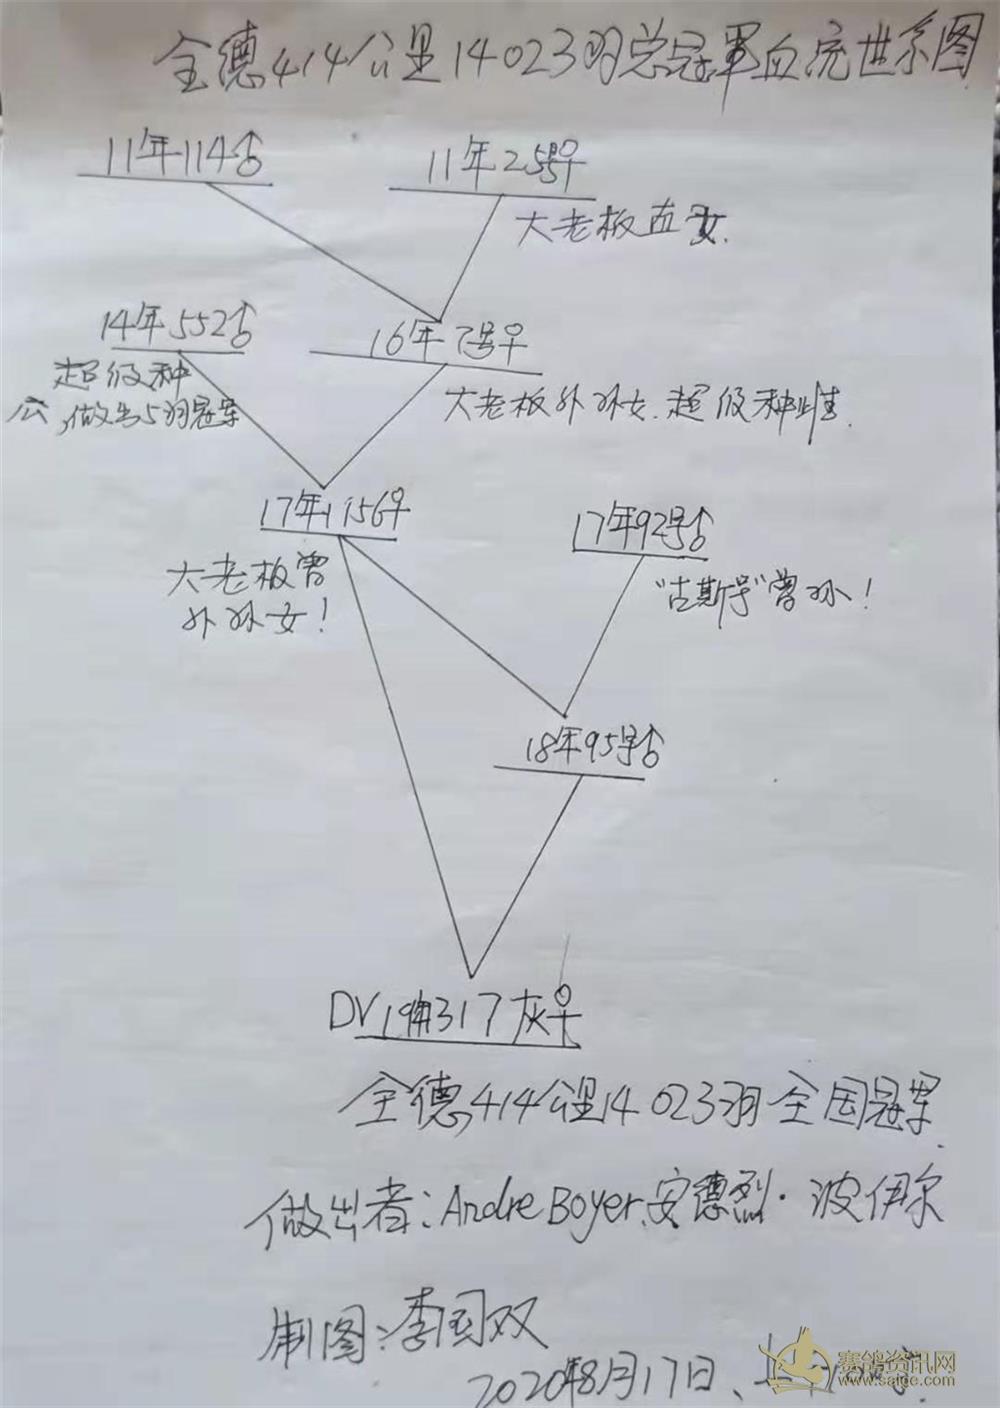 全德414公里14023羽总冠军血统世系图
11年114♂
11年25号♀
大老板直女.
14年552♂
16年7号♀
超级种
公,做出5羽冠军
大老板外孙女.超级种雌.
17年1156♀
17年92号♂
大老板曾
外孙女!
"古斯宇"曾孙!
18年95号♂
DV19年317灰♀
全德,414公里14023羽全国冠军.
做出者:Andre Boyer.安德烈·波伊尔
制图:李国双
2020年8月17日、上
赛鸽资讯网
www.saige.com